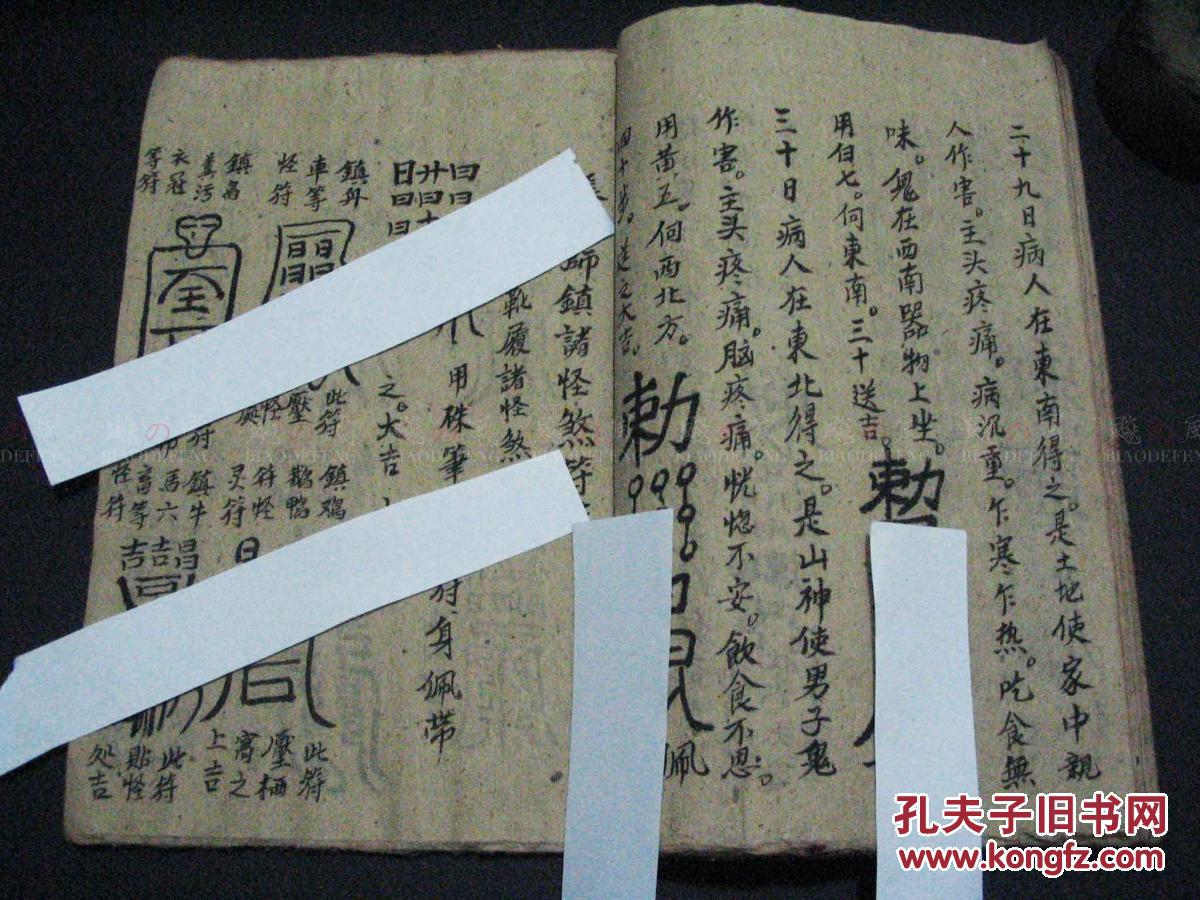 二十九日病人在東南得之。是土地使家中親
人作害。主头疼痛。病沉重。乍寒乍热。吃食無
味。鬼在西南器物上坐。勅
用白七。向東南。三十送吉。
三十日病人在東北得之。是山神使男子鬼
作害。主头疼痛。脑疼痛。恍惚不安。飲食不思。
用黄五。向西北方。
四十步。送之大吉。勅
佩
師鎮諸怪煞符
靴履諸怪煞
用硃筆
身佩带
之。大吉
鎮舟
車等
怪符
此符
壓
怪
鎮畜
糞污
衣冠
等符
鎮鸡
鵝鸭
符怪
灵符
此符
壓栖
窩之
上吉
鎮牛
馬六
畜等
怪符
此符
貼怪
处吉
BIAODEFENG
BIAODEFENG
BIAODEFENG
BIAODEFENG
孔夫子旧书网
www.kongfz.com